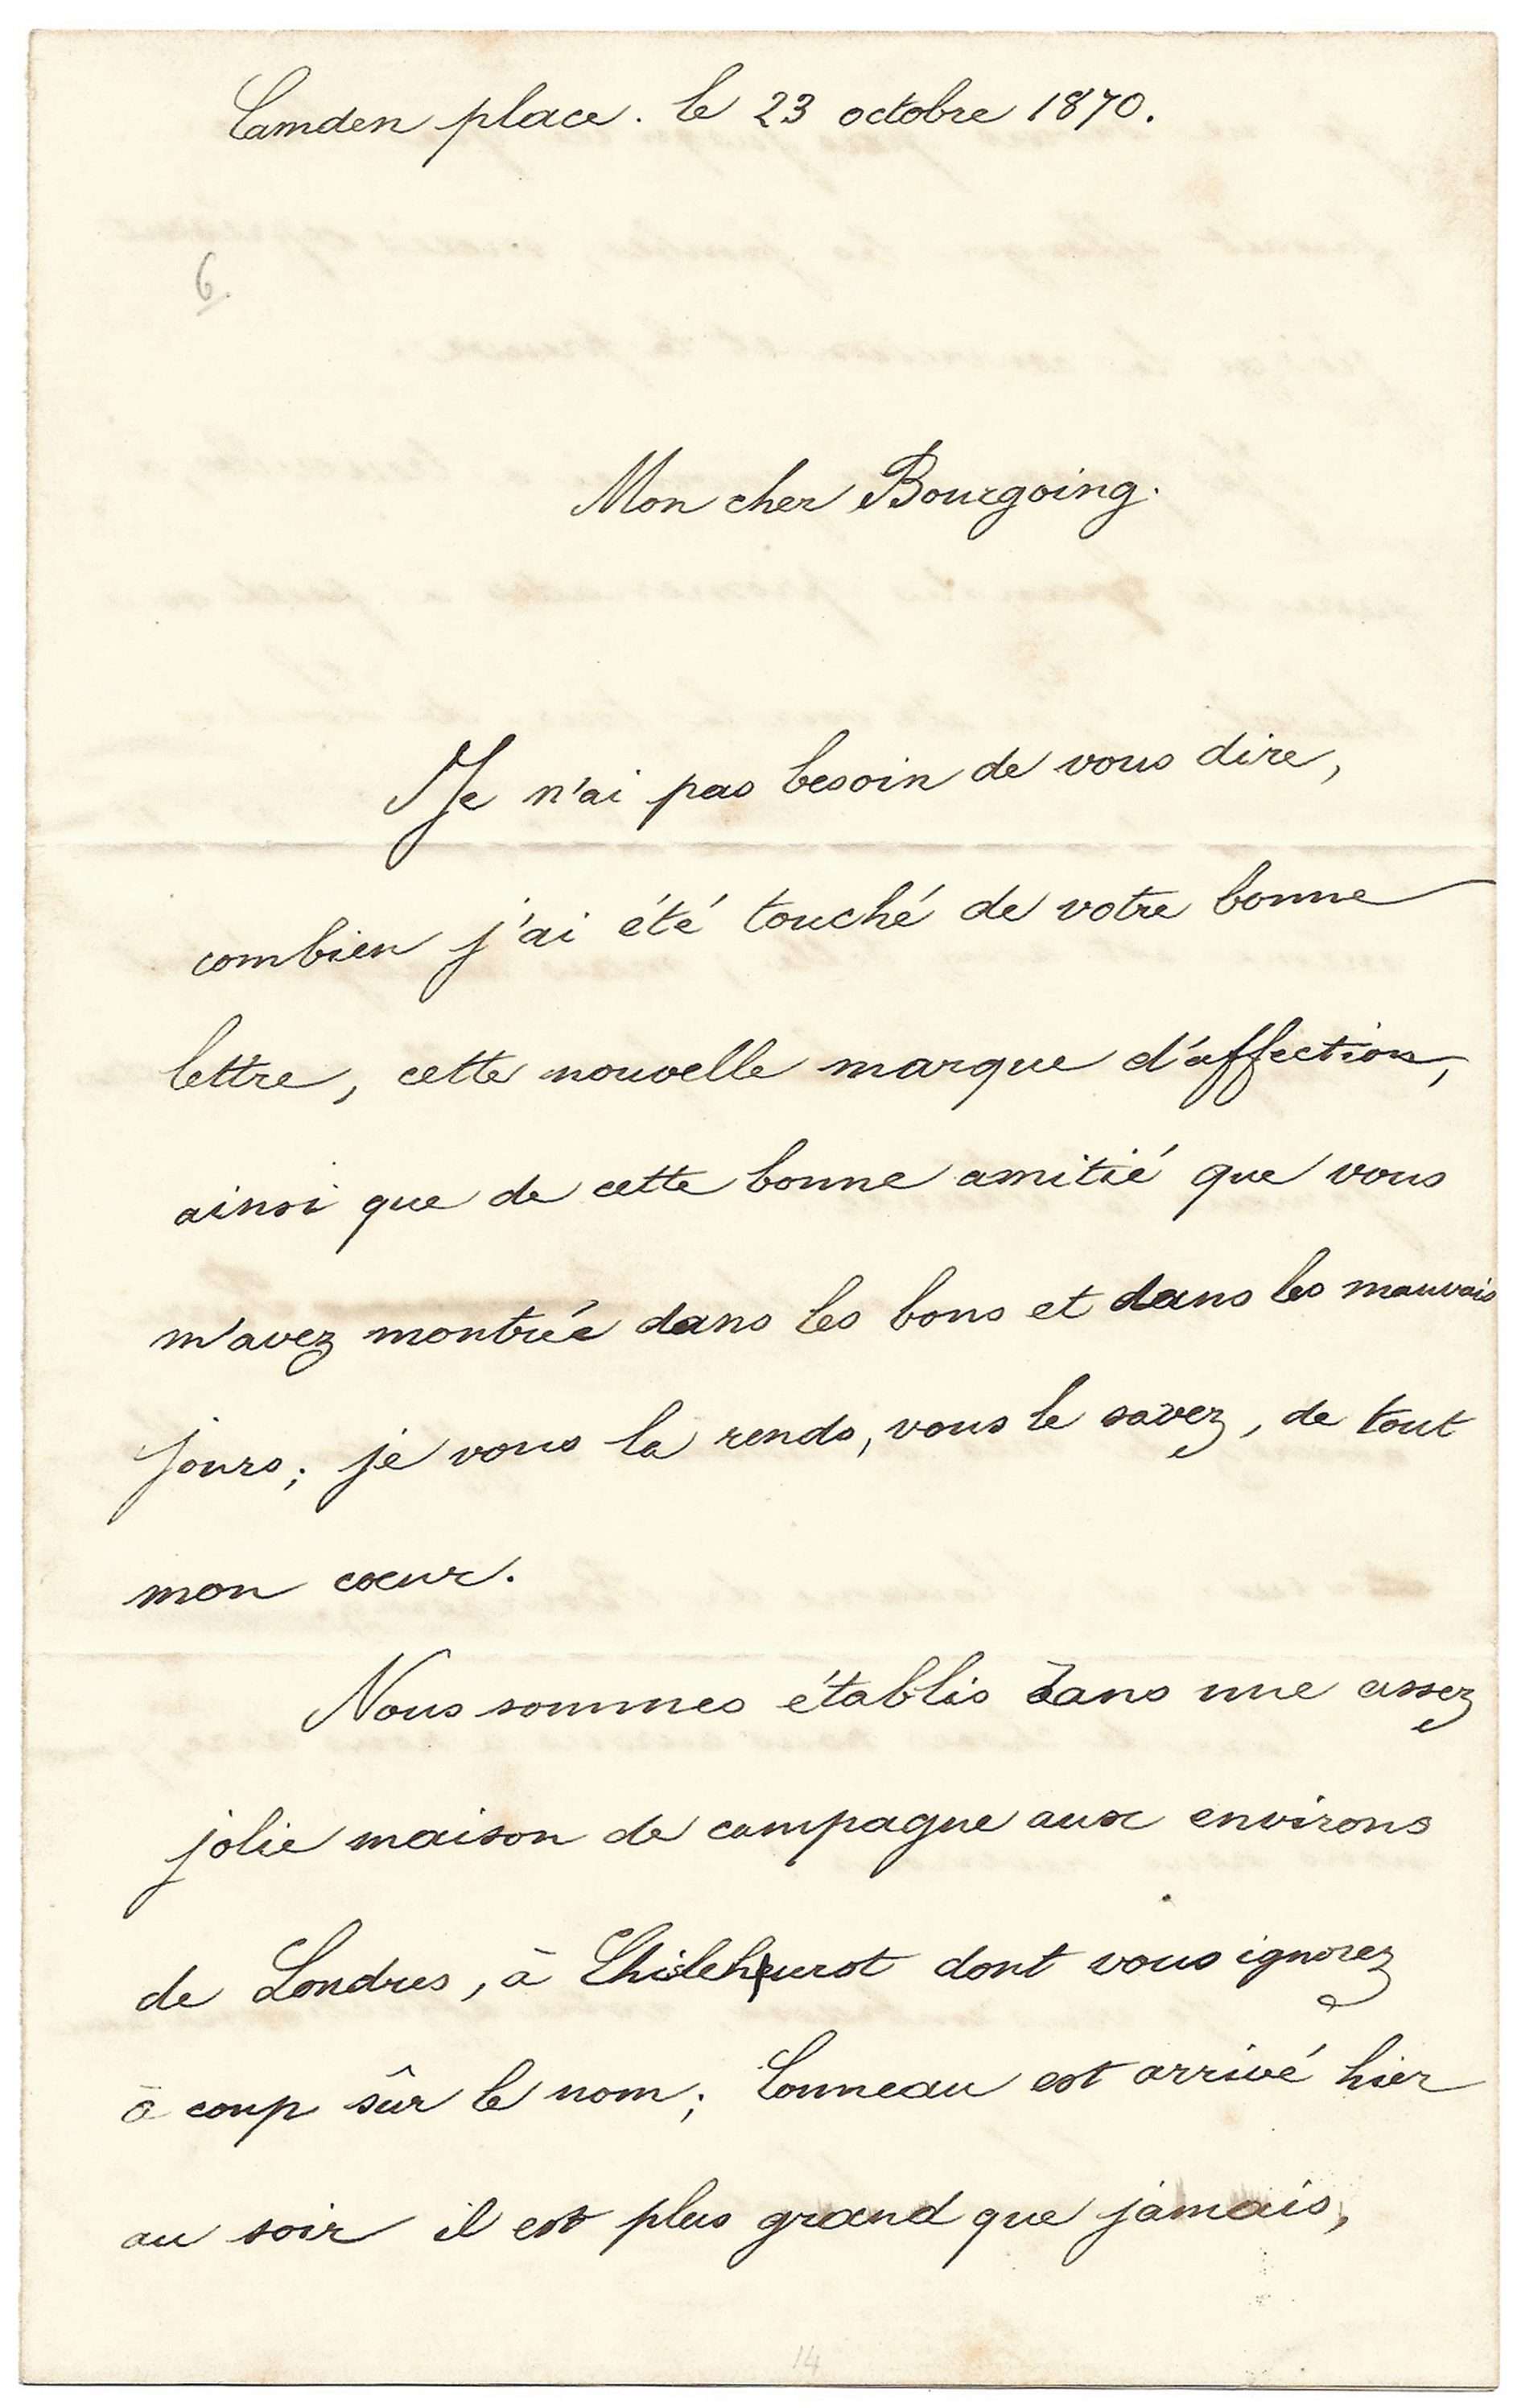 Camden place. le 23 octobre 1870.
6.
Mon cher Bourgoing.
Je n'ai pas besoin de vous dire,
combien j'ai été touché de votre bonne
lettre, cette nouvelle marque d'affection,
ainsi que de cette bonne amitié que vous
m'avez montrée dans les bons et dans les mauvais
jours; je vous la rends, vous le savez, de tout
mon cœur.
Nous sommes établis dans une assez
jolie maison de campagne aux environs
de Londres, à Chislehurst dont vous ignorez
à coup sûr le nom; Conneau est arrivé hier
au soir il est plus grand que jamais,
14